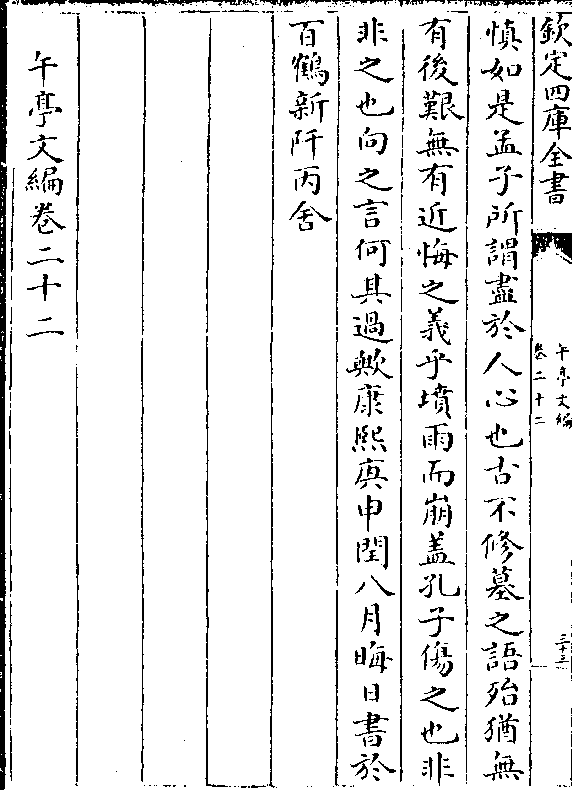 欽定四庫全書
午亭文編
卷二十二
三十三
慎如是孟子所謂盡於人心也古不修墓之語殆猶無
有後艱無有近悔之義乎墳雨而崩盖孔子傷之也非
非之也向之言何其過歟康熙庚申閏八月晦日書於
百鶴新阡丙舍
午亭文編卷二十二